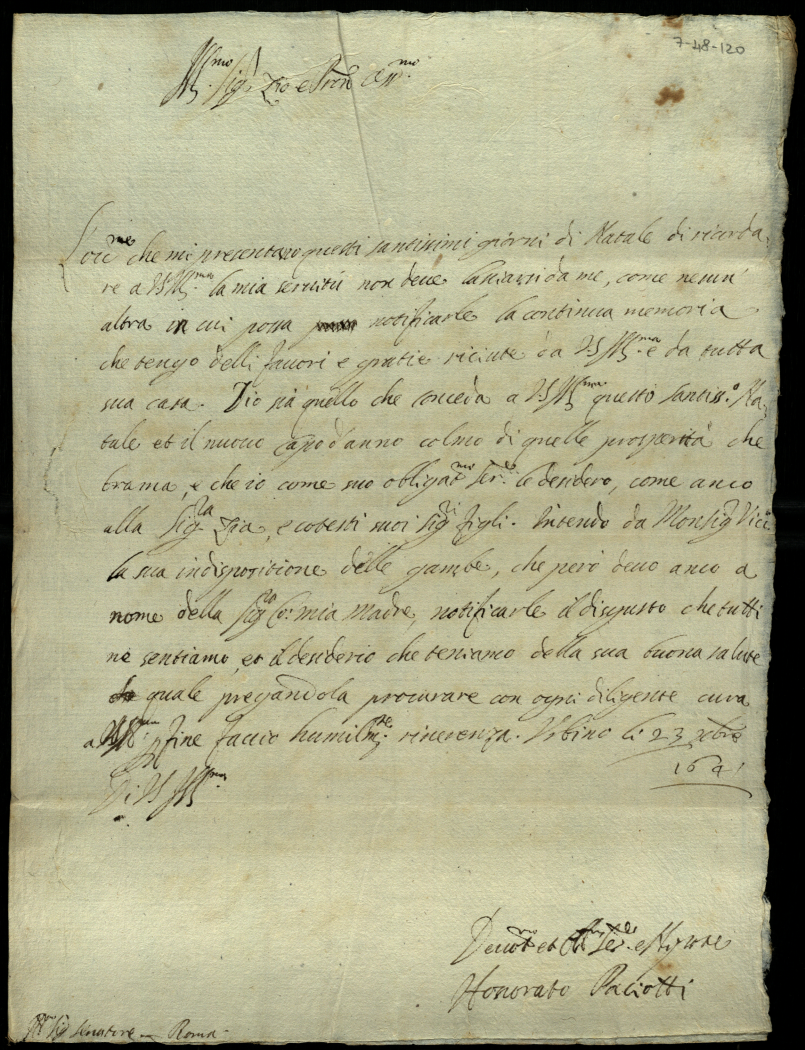 7-48-120
Ill.mo Sig.r Zio e Pron Oss.mo
che mi presentano questi santissimi giorni di Natale di ricorda-
re a VS Ill.ma la mia servitù non deve lasciarsi da me, come nesun'
altra in cui possa notificarle la continua memoria
che tengo delli favori e gratie riciute da VS Ill.ma e da tutta
sua casa. Dio sia quello che conceda a VS Ill.ma questo santiss.o Na-
tale et il nuovo capo d'anno colmo di quelle prosperità che
brama, e che io come suo obligat.mo ser.re le desidero, come anco
alla Sig.ra Zia, e cotesti suoi Sig.ri figli. Intendo da Monsig.r Vice
la sua indispositione delle gambe, che però devo anco a
nome della Sig.ra mia Madre, notificarle il disgusto che tutti
ne sentiamo, et il desiderio che teniamo della sua buona salute
quale pregandola procurare con ogni diligente cura
a VS Ill.ma p fine faccio humilm.te riverenza. Urbino li 23 xbre
Di VS Ill.ma
Devot.mo et Ser.re e Nipote
Honorato Paciotti
Ill.mo Sig.r Senatore - Roma.